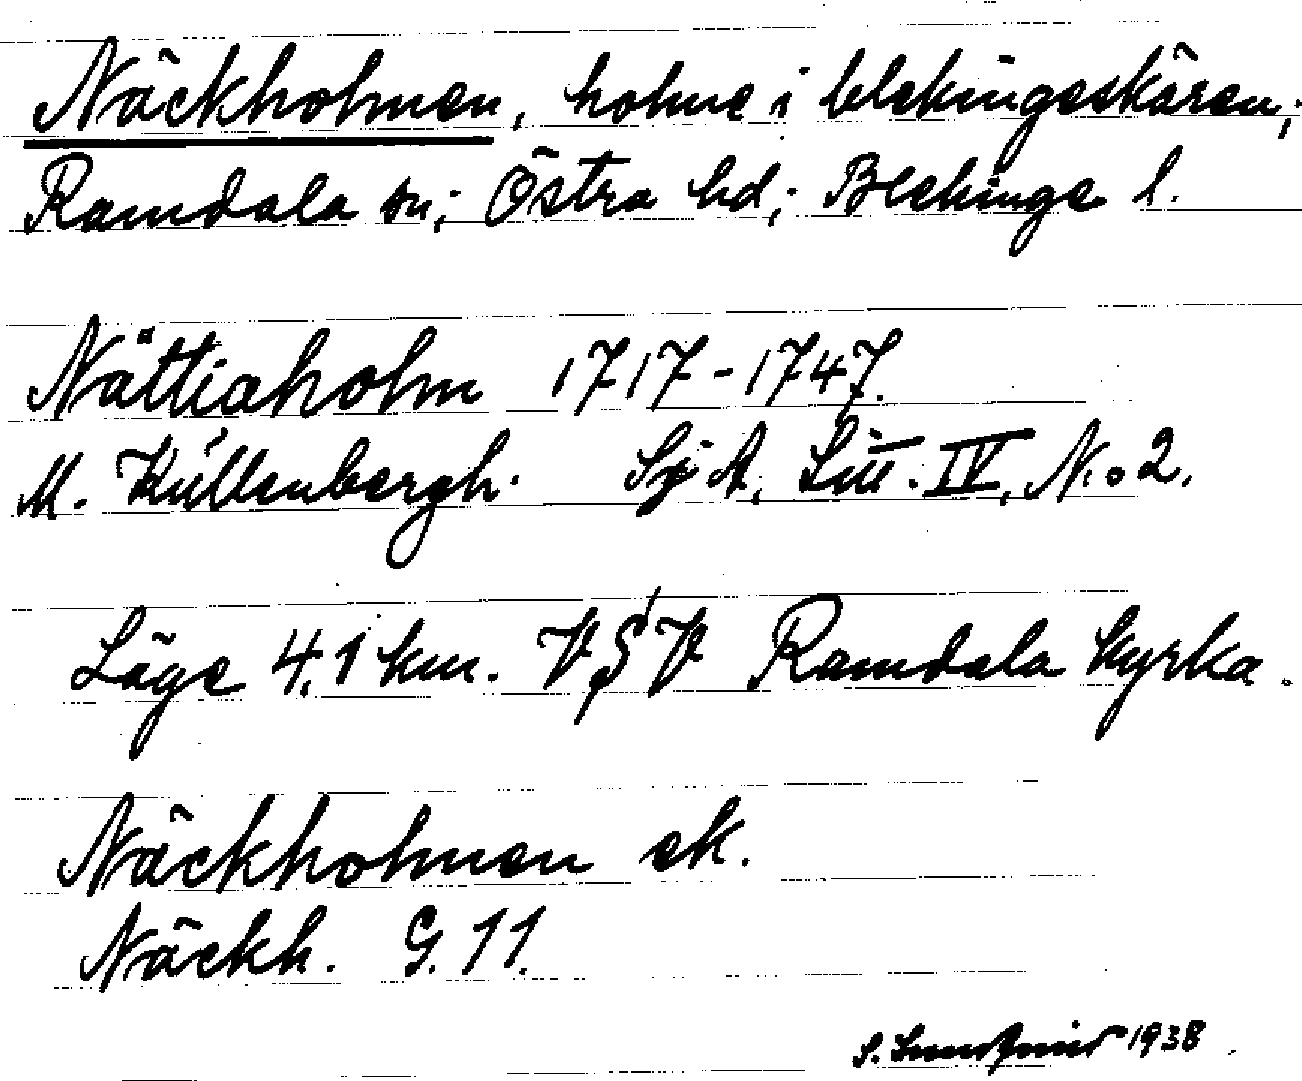 Näckholmen, holme i blekingeskären;
Ramdala sn; Östra hd; Blekinge l.
Nättiaholm 1717-1747.
M. Küllenbergh. Sj A, Litt. IV, N:o 2.
Läge 4,1 km. VSV Ramdala kyrka.
Näckholmen ek.
Näckh. G. 11.
S. 1938